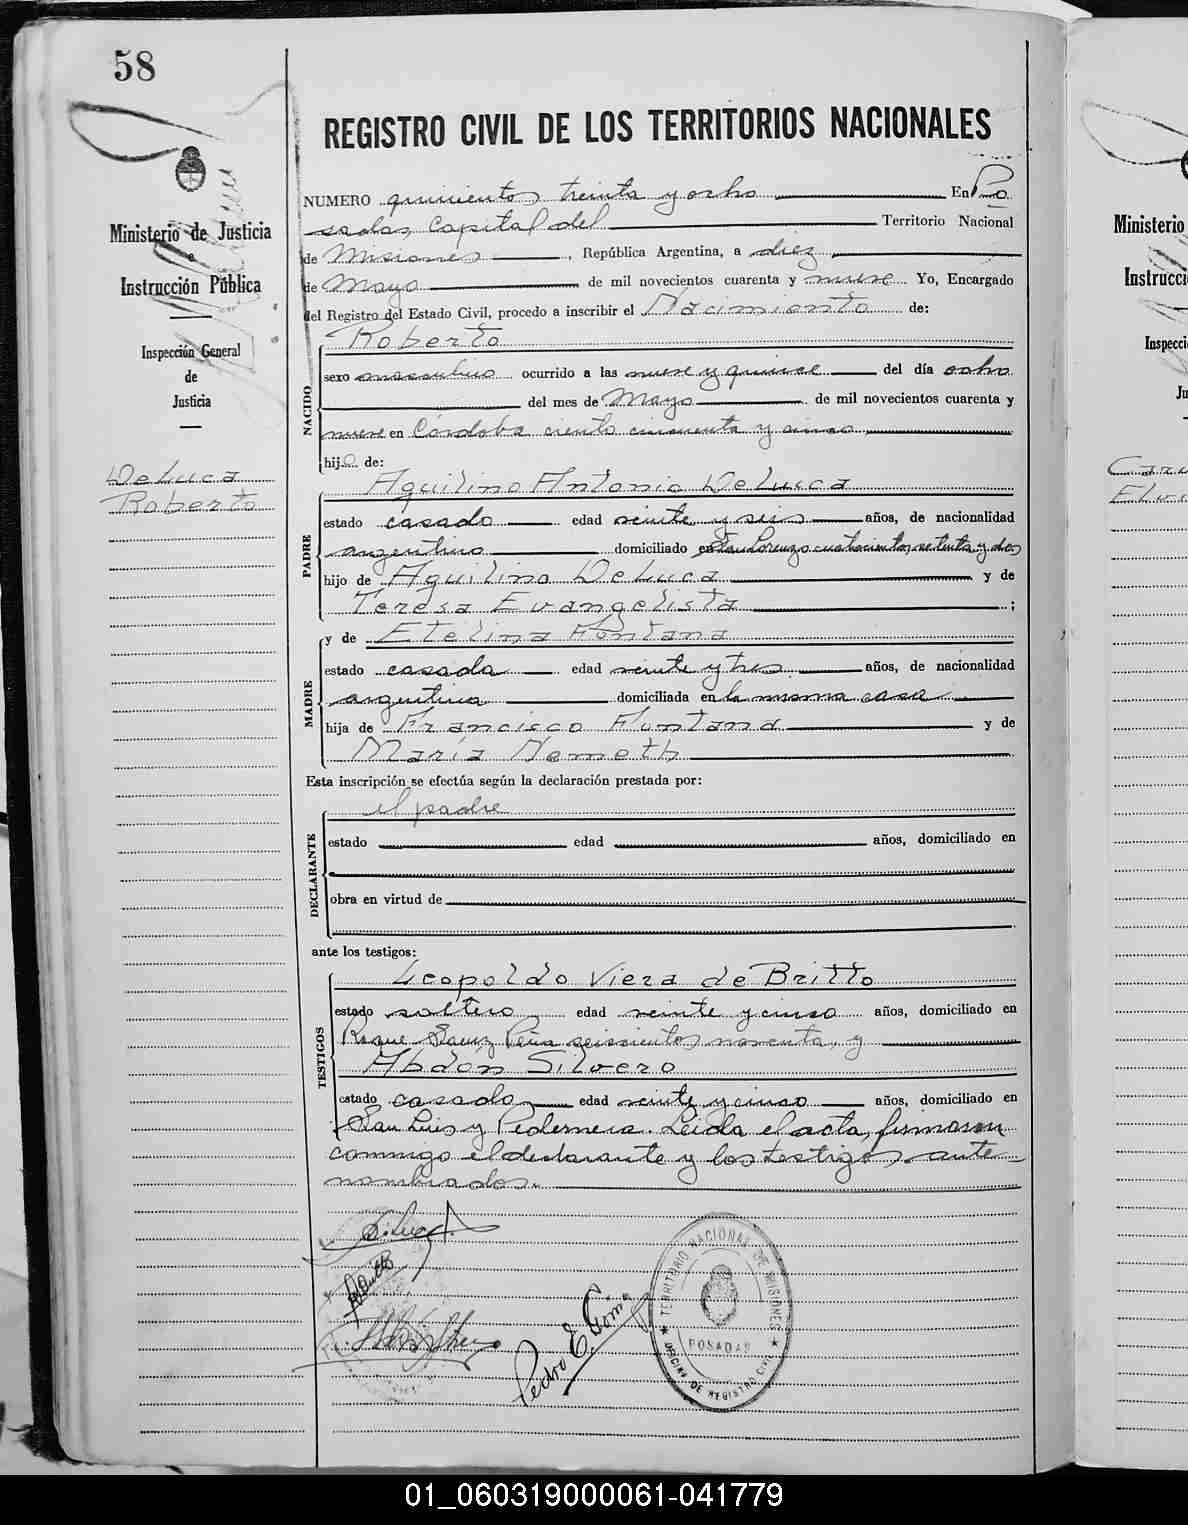 58
REGISTRO CIVIL DE LOS TERRITORIOS NACIONALES
NUMERO quinientos treinta y ocho En Po
sadas, Capital del Territorio Nacional
de Misiones, República Argentina, a diez
de Mayo de mil novecientos cuarenta y nueve Yo, Encargado
del Registro del Estado Civil, procedo a inscribir el Nacimiento de:
Roberto
sexo masculino ocurrido a las nueve y quince del día ocho
del mes de Mayo de mil novecientos cuarenta y
nueve en Córdoba ciento cincuenta y cinco
hijo de:
NACIDO
Aquilino Antonio De Luca
estado casado edad veinte y seis años, de nacionalidad
argentino domiciliado en San Lorenzo cuatrocientos setenta y dos
hijo de Aquilino De Luca y de
Teresa Evangelista ;
PADRE
y de Etelina Fontana
estado casada edad veinte y tres años, de nacionalidad
argentina domiciliada en la misma casa
hija de Francisco Fontana y de
María Nemeth
MADRE
Esta inscripción se efectúa según la declaración prestada por:
el padre
estado edad años, domiciliado en
obra en virtud de
DECLARANTE
ante los testigos:
Leopoldo Viera de Britto
estado soltero edad veinte y cinco años, domiciliado en
Roque Saenz Peña seiscientos noventa, y
Abdón Silvero
estado casado edad veinte y cinco años, domiciliado en
San Luis y Pedernera. Leída el acta, firmaron
conmigo el declarante y los testigos ante
nombrados.
TESTIGOS
Pedro E.
TERRITORIO NACIONAL DE MISIONES
POSADAS
OFICINA DE REGISTRO CIVIL
Ministerio de Justicia
e
Instrucción Pública
Inspección General
de
Justicia
De Luca
Roberto
Ministerio
Instrucci
Inspecci
Ju
01_060319000061-041779